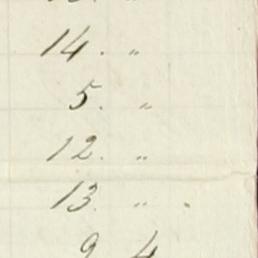 14. "
5. "
12. "
13. " "
9 4